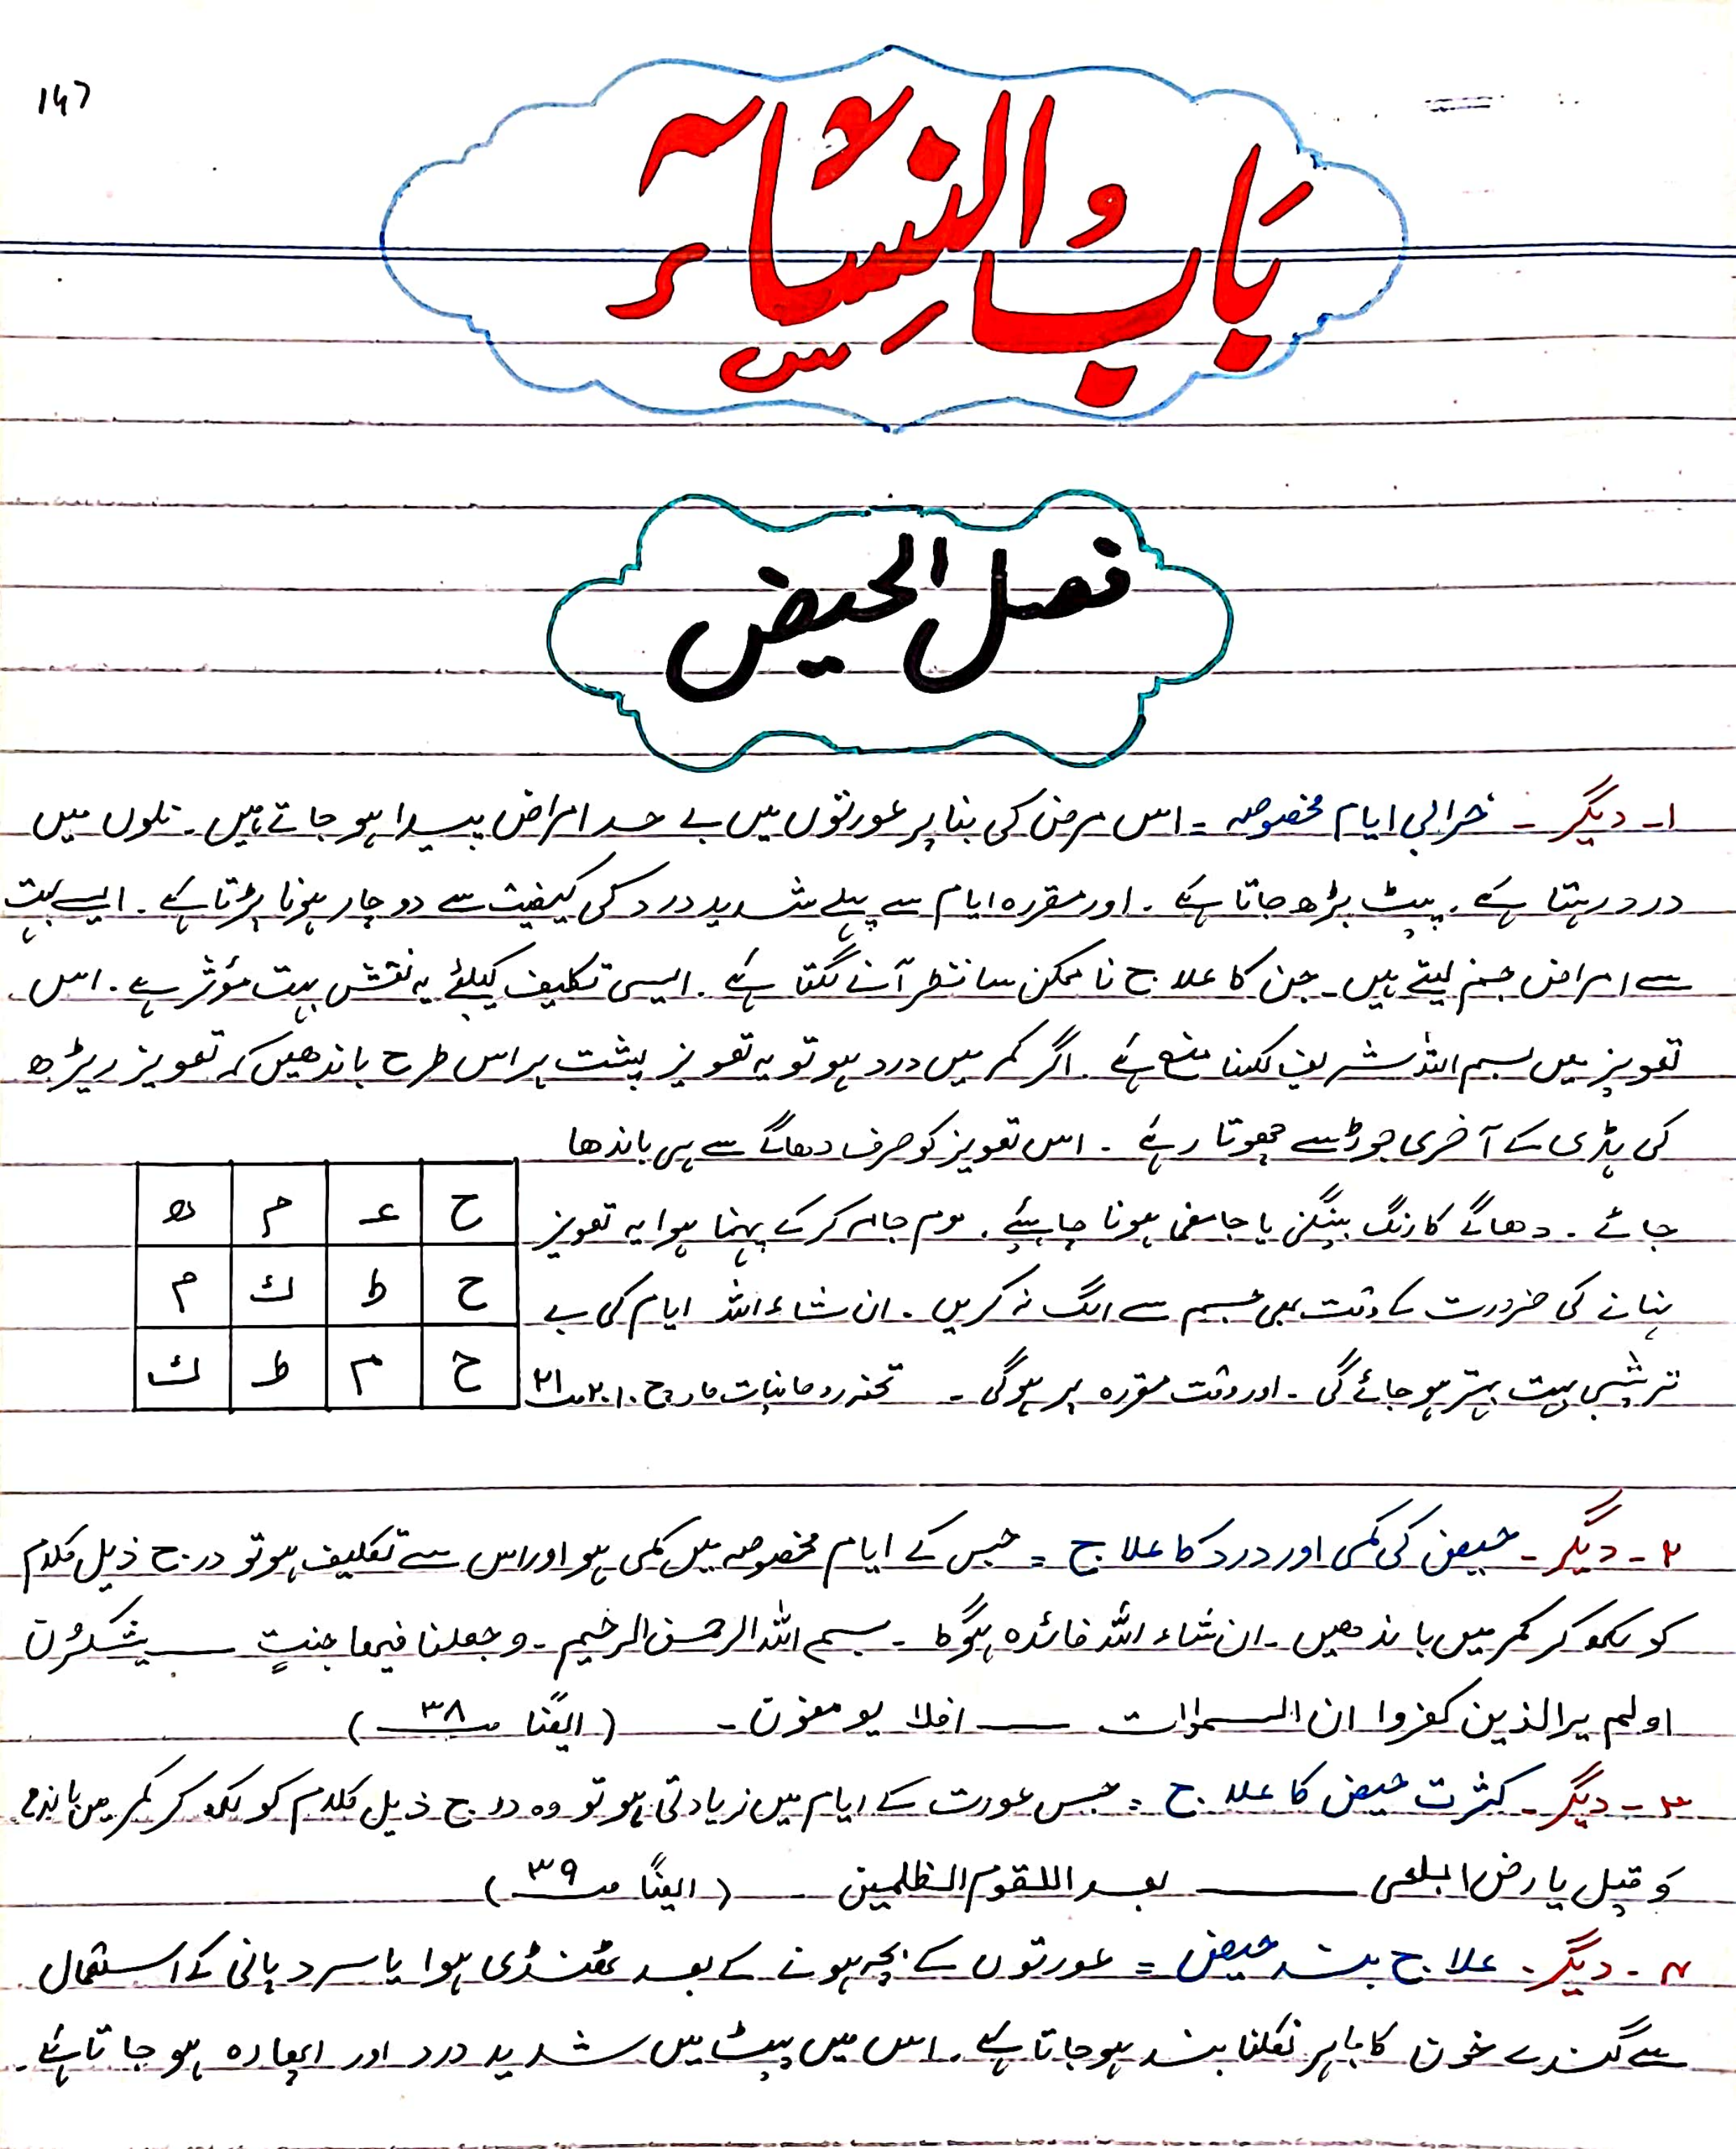 ۱۴۷
بَابُ النِّسَاء
فصل الحیض
۱۔ دیگر ۔ خرابی ایام مخصوصہ = اس مرض کی بنا پر عورتوں میں بے حد امراض پیدا ہو جاتے ہیں ۔ نلوں میں
درد رہتا ہے ۔ پیٹ بڑھ جاتا ہے ۔ اور مقررہ ایام سے پہلے شدید درد کی کیفیت سے دو چار ہونا پڑتا ہے ۔ ایسے بہت
سے امراض جنم لیتے ہیں ۔ جن کا علاج نا ممکن سا نظر آنے لگتا ہے ۔ ایسی تکلیف کیلئے یہ نقش بہت مؤثر ہے ۔ اس
تعویز میں بسم اللہ شریف لکھنا منع ہے ۔ اگر کمر میں درد ہو تو یہ تعویز پشت پر اس طرح باندھیں کہ تعویز ریڑھ
کی ہڈی کے آخری جوڑ سے چھوتا رہے ۔ اس تعویز کو صرف دھاگے سے ہی باندھا
جائے ۔ دھاگے کا رنگ بینگنی یا جامنی ہونا چاہیئے ۔ موم جامہ کر کے پہنا ہوا یہ تعویز
نہانے کی ضرورت کے وقت بھی جسم سے الگ نہ کریں ۔ ان شاء اللہ ایام کی بے
ترتیبی بہت بہتر ہو جائے گی ۔ اور وقت مقررہ پر ہوگی ۔ تحفہ روحانیات مارچ ۲۰۱۰ ص ۲۱
ح عـ م ھ
ح ط ك م
ح م ط ك
۲ ۔ دیگر ۔ حیض کی کمی اور درد کا علاج = جس کے ایام مخصوصہ میں کمی ہو اور اس سے تکلیف ہو تو درج ذیل کلام
کو لکھ کر کمر میں باندھیں ۔ ان شاء اللہ فائدہ ہوگا ۔ بسم اللہ الرحمن الرحیم ۔ وجعلنا فیھا جنتٍ ــــ یشکرُن
اولم یر الذین کفروا ان السموات ــــ افلا یومنون ۔ ( ایضًا ص ۳۸ )
۳ ۔ دیگر ۔ کثرت حیض کا علاج = جس عورت کے ایام میں زیادتی ہو تو وہ درج ذیل کلام کو لکھ کر کمر میں باندھے
وَ قیل یارض ابلعی ــــــ بعد اللقوم الظلمین ۔ ( ایضًا ص ۳۹ )
۴ ۔ دیگر ۔ علاج بند حیض = عورتوں کے بچہ ہونے کے بعد ٹھنڈی ہوا یا سرد پانی کے استعمال
سے گندے خون کا باہر نکلنا بند ہو جاتا ہے ۔ اس میں پیٹ میں شدید درد اور اپھارہ ہو جاتا ہے ۔